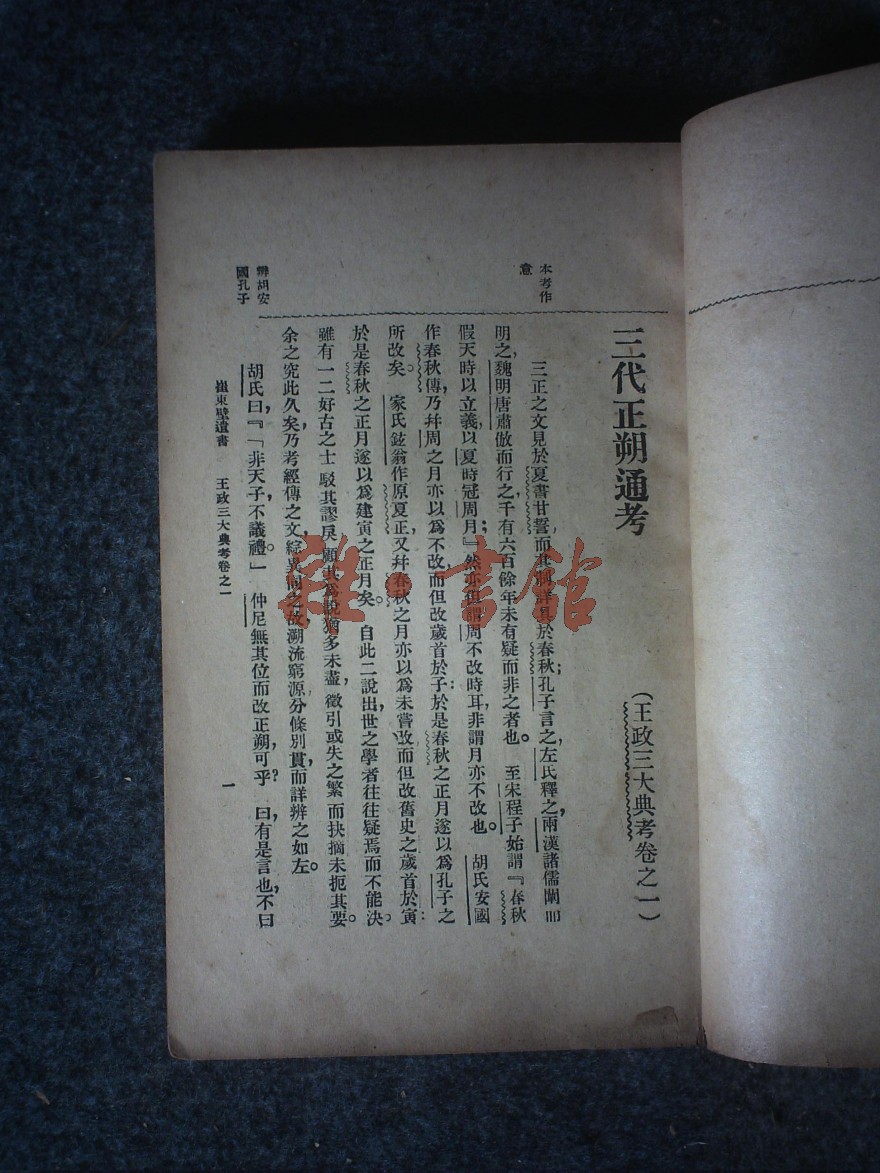 三代正朔通考
（王政三大典考卷之一）
本考作
意
三正之文見於夏書甘誓，而其制詳具於春秋；孔子言之，左氏釋之，兩漢諸儒闡而
明之，魏明唐肅倣而行之，千有六百餘年未有疑而非之者也。至宋程子始謂『春秋
假天時以立義，以夏時冠周月；』然亦但謂周不改時耳，非謂月亦不改也。胡氏安國
作春秋傳，乃幷周之月亦以爲不改，而但改歲首於子：於是春秋之正月遂以爲孔子之
所改矣。家氏鉉翁作原夏正，又幷春秋之月亦以爲未嘗改，而但改舊史之歲首於寅：
於是春秋之正月遂以爲建寅之正月矣。自此二說出，世之學者往往疑焉而不能決。
雖有一二好古之士駁其謬戾，顧其爲說猶多未盡，徵引或失之繁而抉摘未扼其要。
余之究此久矣，乃考經傳之文，綜異同之故，溯流窮源，分條別貫，而詳辨之如左。
辨胡安
國孔子
胡氏曰，『「非天子，不議禮。」仲尼無其位而改正朔，可乎？曰，有是言也，不曰
崔東壁遺書 王政三大典考卷之一 一
雜·書館